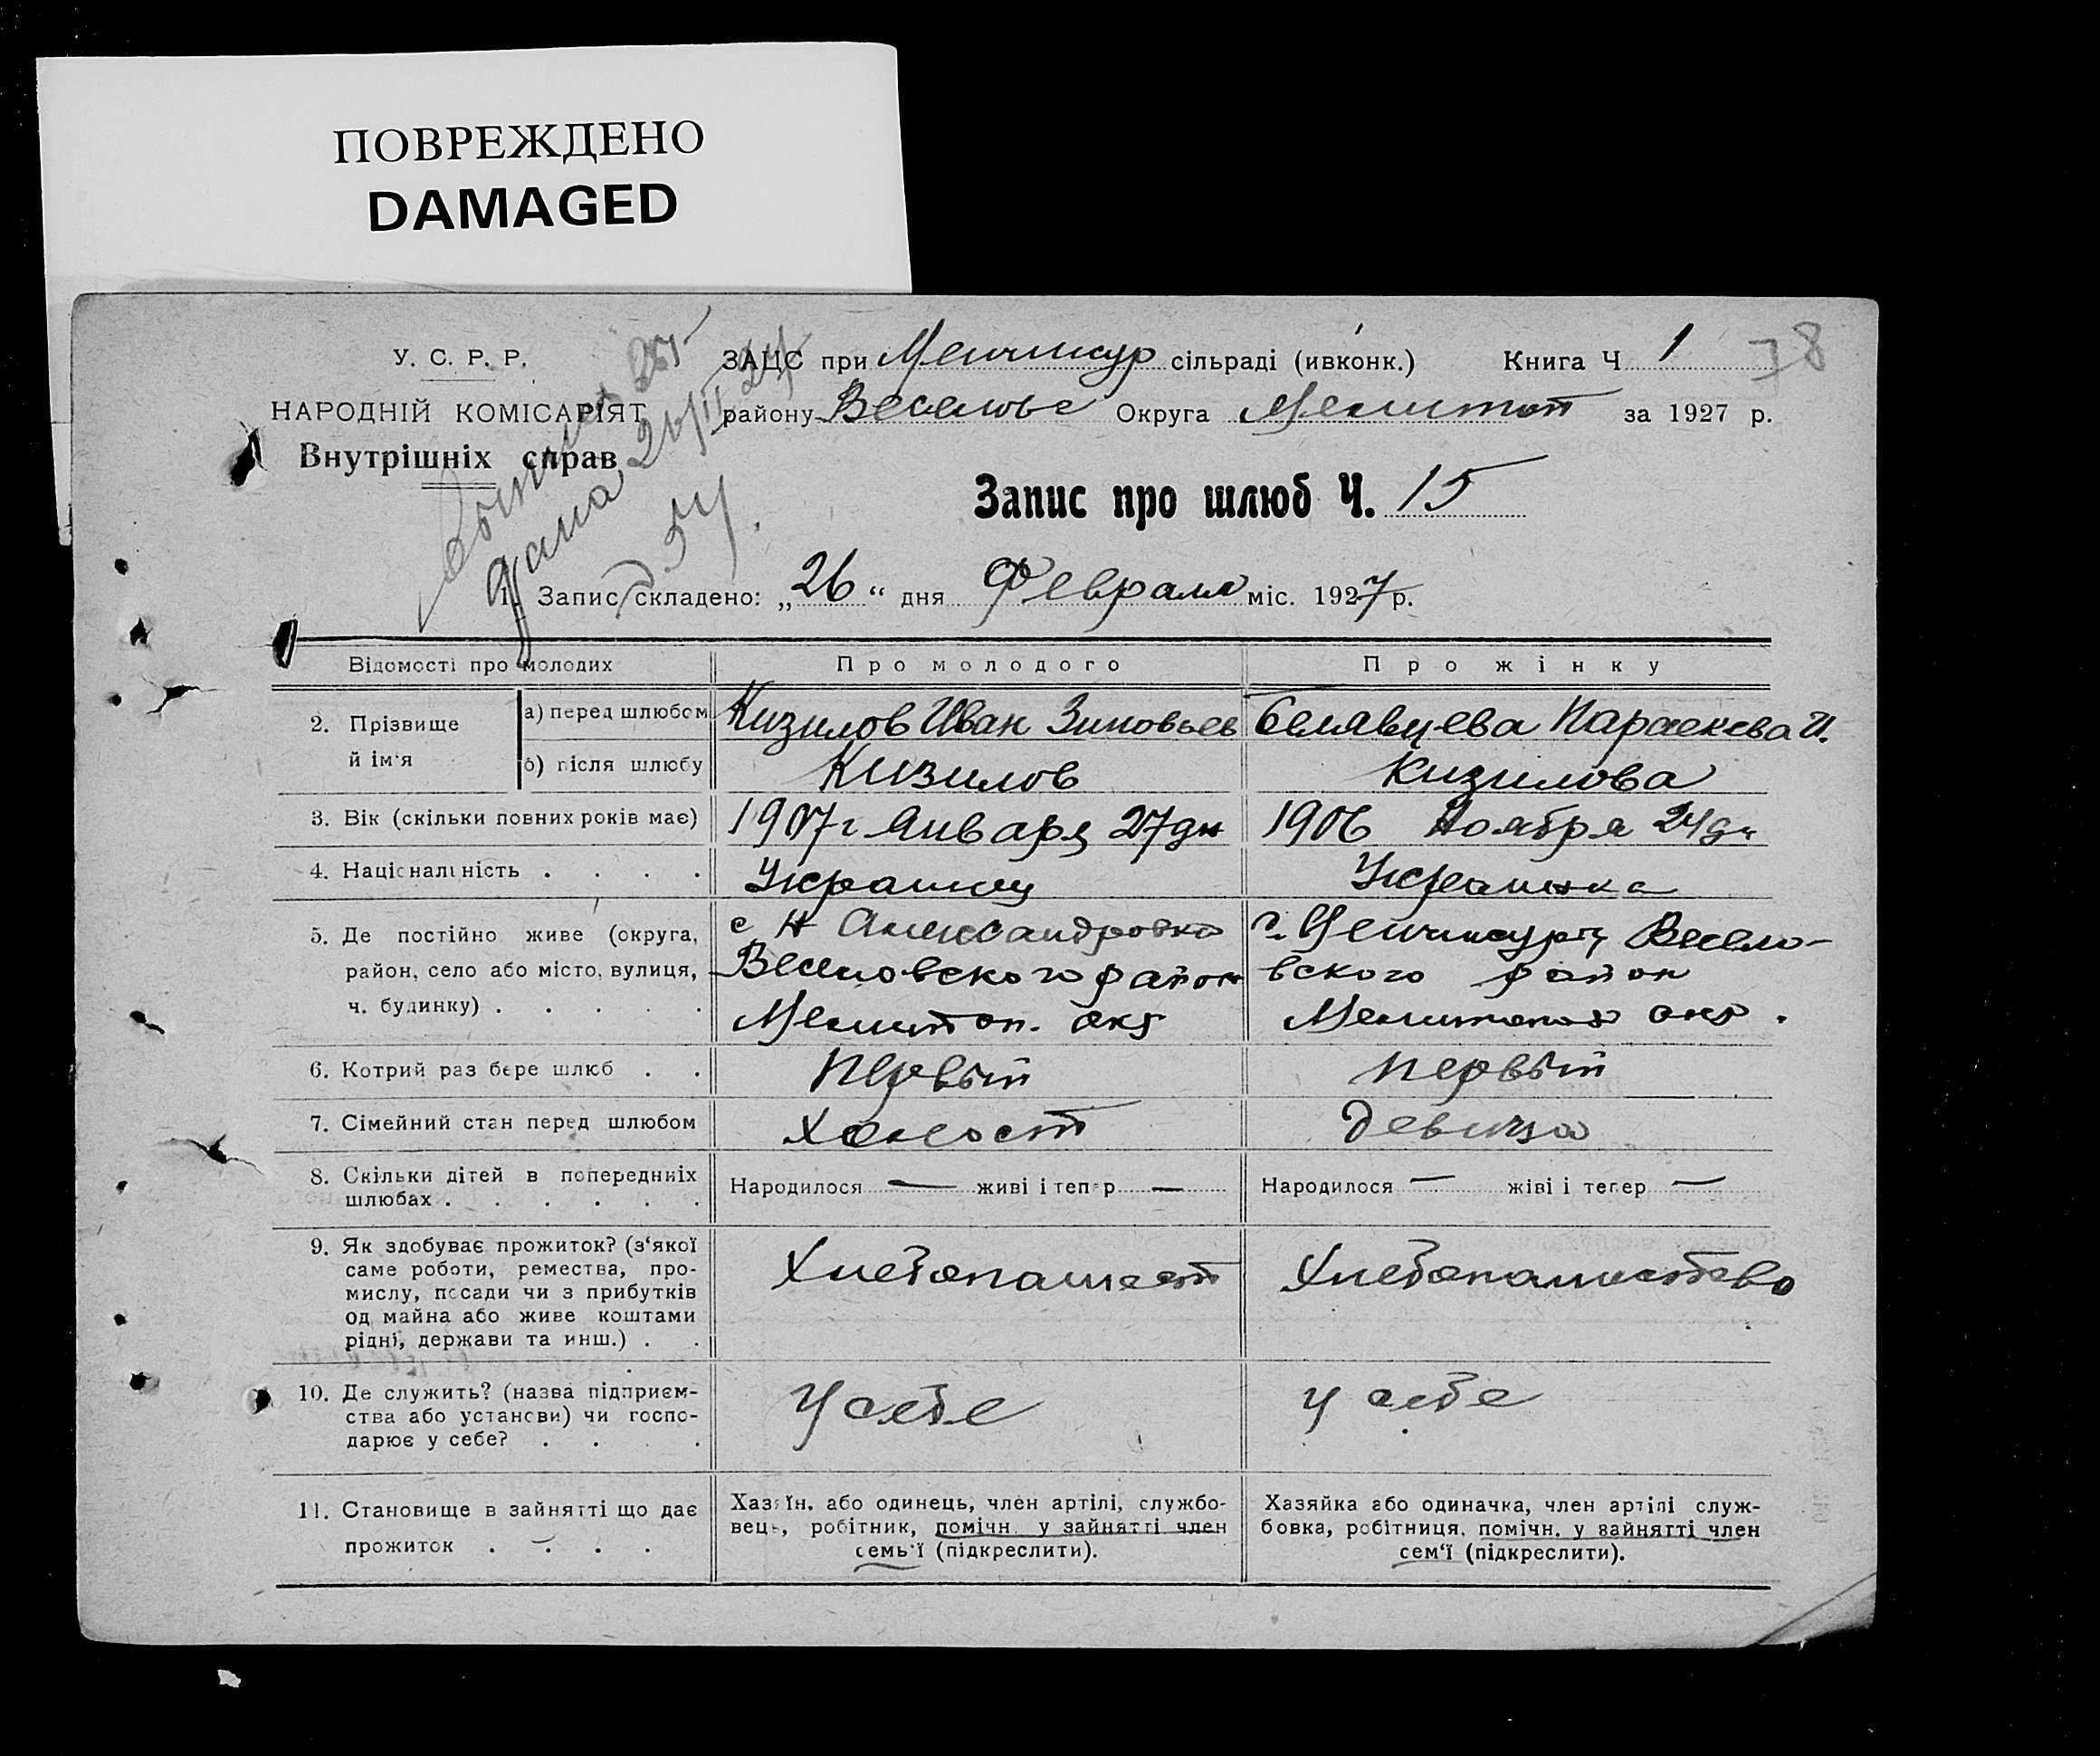 ПОВРЕЖДЕНО
DAMAGED
У. С. Р. Р.
НАРОДНІЙ КОМІСАРІЯТ
Внутрішніх справ
ЗАЦС при Менчикур сільраді (ивконк.) Книга Ч 1 78
району Веселове Округа Мелитоп за 1927 р.
Запис про шлюб Ч. 15
1. Запис складено: „26“ дня Февраля міс. 1927 р.
Відомості про молодих Про молодого Про жінку
2. Прізвище й ім'я
а) перед шлюбом Кизилов Иван Зиновьев Белявцева Параскева И.
б) після шлюбу Кизилов Кизилова
3. Вік (скільки повних років має) 1907 г Января 27 дн 1906 Ноября 24 дн
4. Національність . . . . Украинец Украинка
5. Де постійно живе (округа,
район, село або місто, вулиця,
ч. будинку) . . . . .
с Н Александровка
Веселовского район
Мелитоп. окр
Менчикуры Весело-
вского район
Мелитопол окр.
6. Котрий раз бере шлюб . . Первый Первый
7. Сімейний стан перед шлюбом Холост Девица
8. Скільки дітей в попередніх
шлюбах . . . . . .
Народилося — живі і тепер —
Народилося — жіві і тепер —
9. Як здобуває прожиток? (з‘якої
саме роботи, ремества, про-
мислу, посади чи з прибутків
од майна або живе коштами
рідні, держави та инш.) . .
Хлебопашест
Хлебопашество
10. Де служить? (назва підприєм-
ства або установи) чи госпо-
дарює у себе? . . . .
У себе
У себе
11. Становище в зайнятті що дає
прожиток . . . .
Хазяїн. або одинець, член артілі, службо-
вець, робітник, помічн. у зайнятті член
семь'ї (підкреслити).
Хазяйка або одиначка, член артілі служ-
бовка, робітниця, помічн. у зайнятті член
сем‘ї (підкреслити).